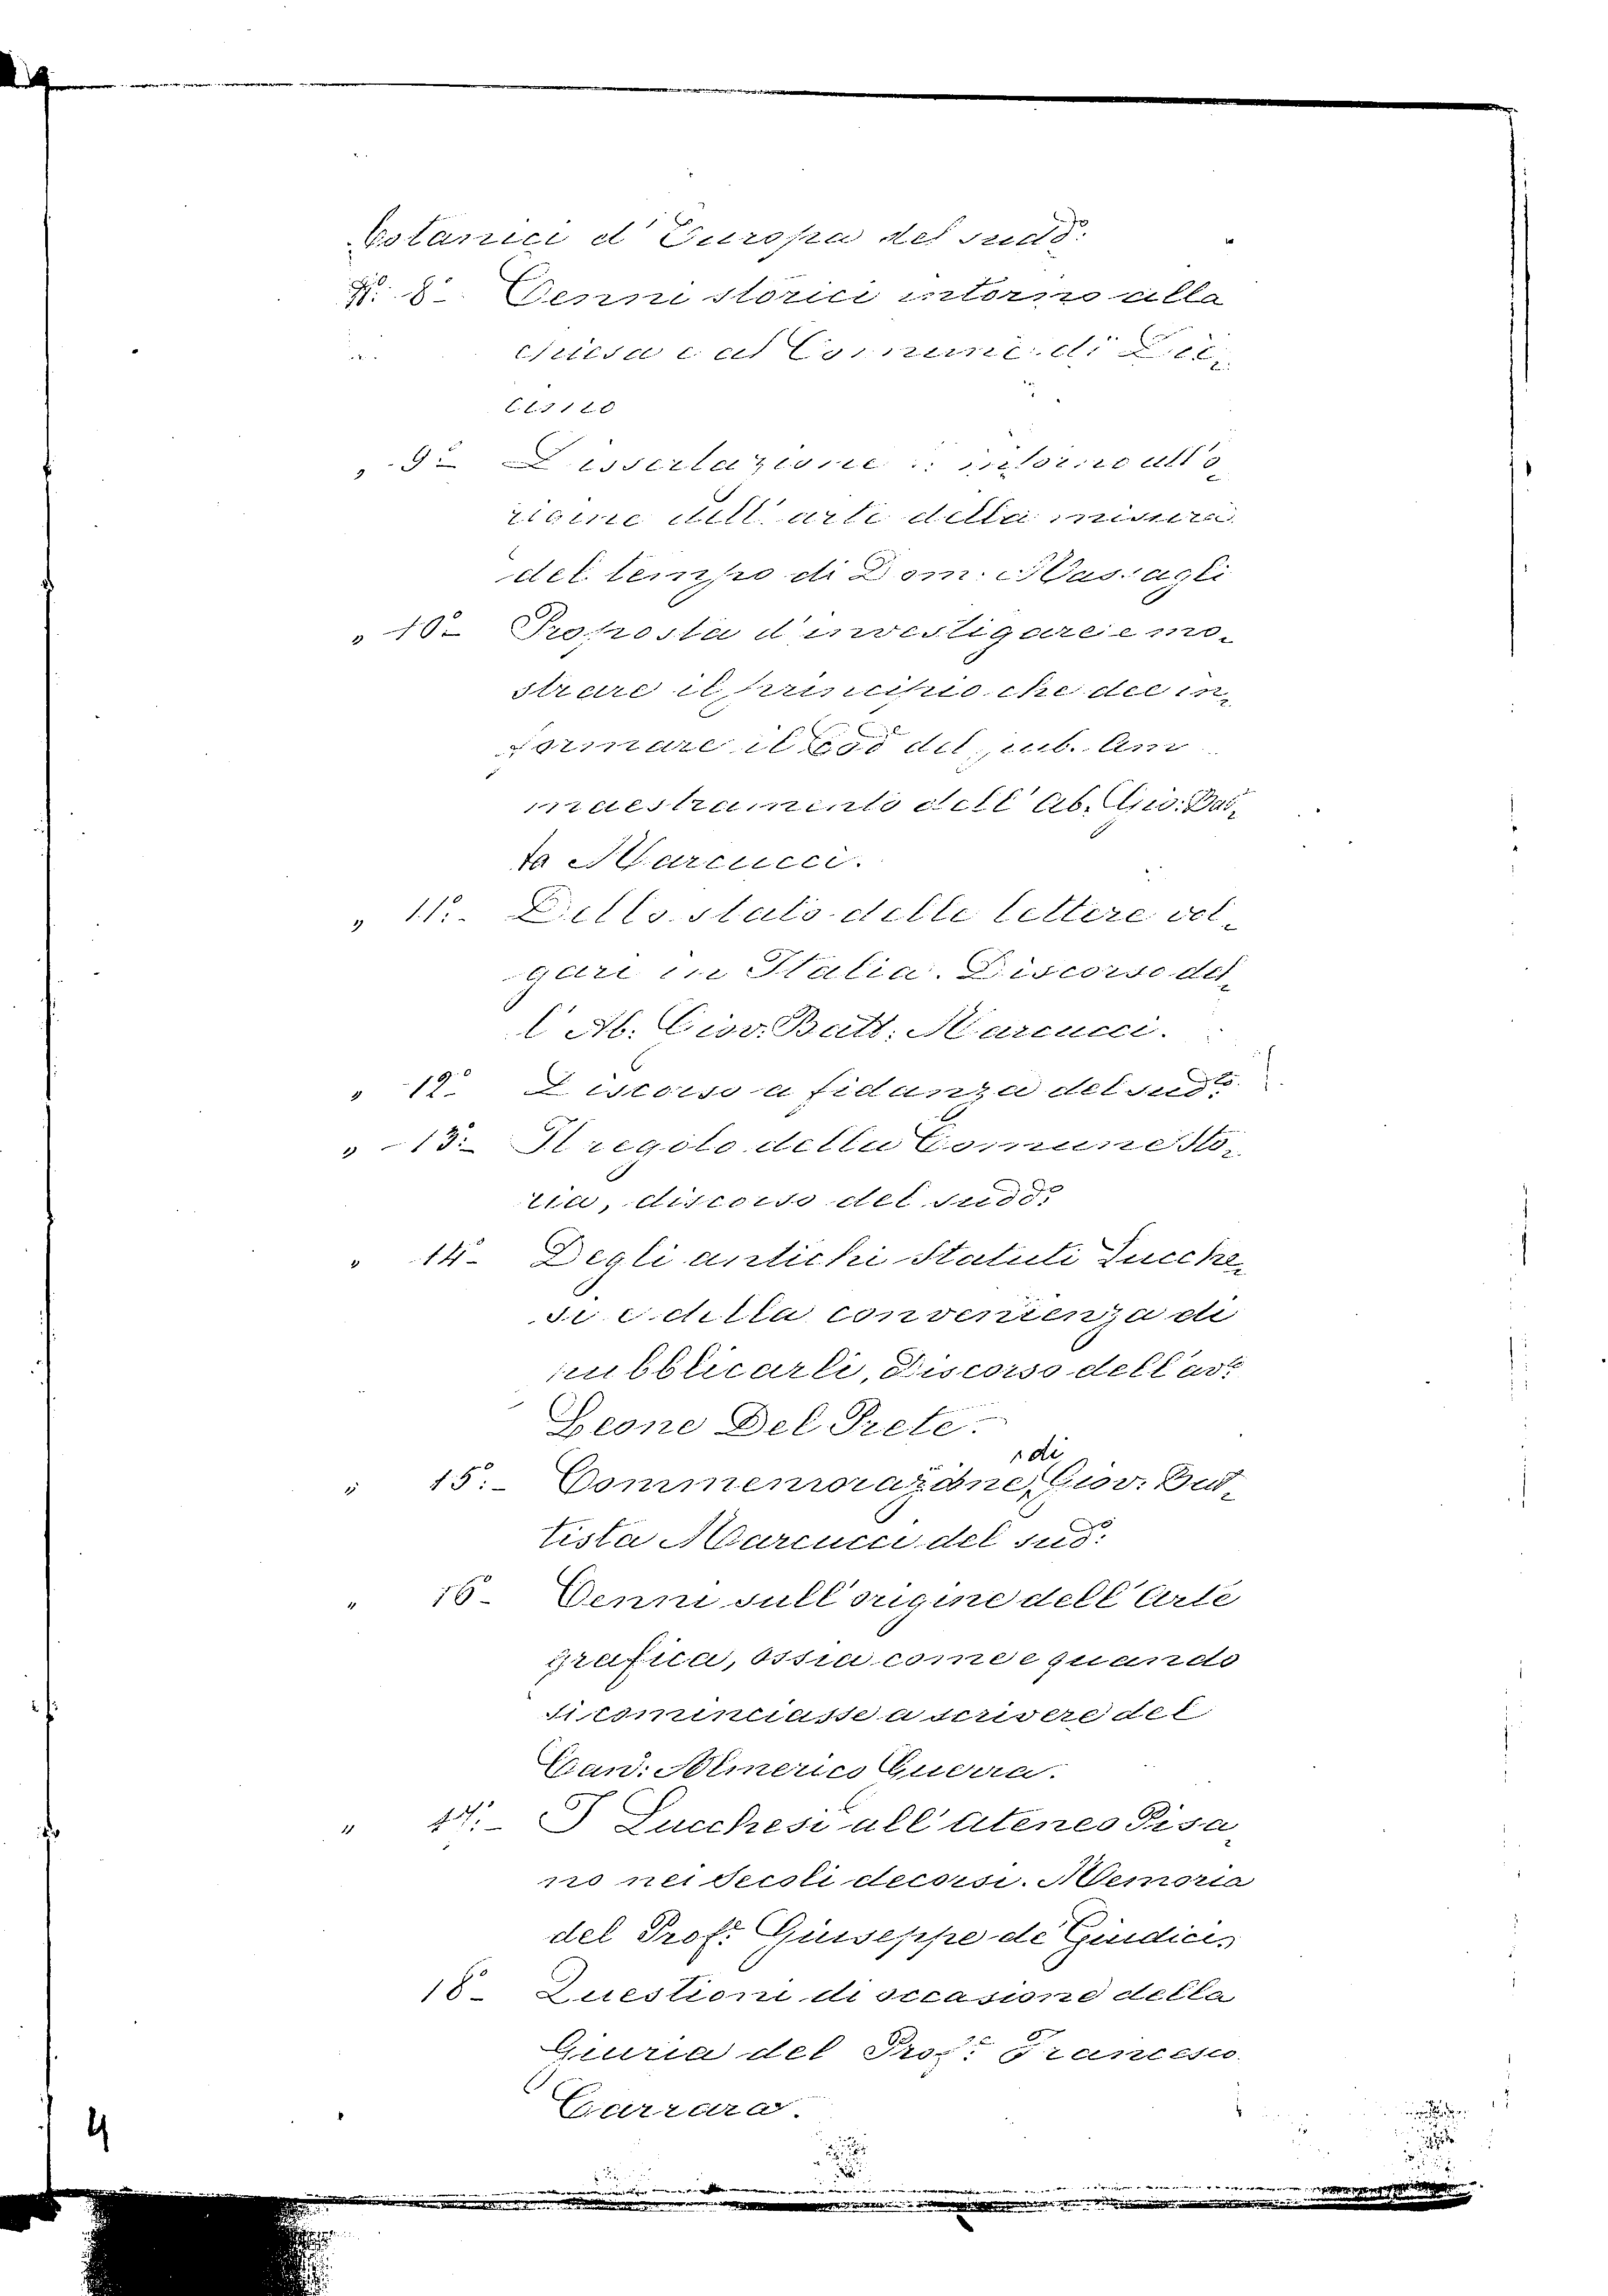 botanici d'Europa del sudd.º
N. 8. Cenni storici intorno alla
chiesa e al Comune di
„ 9. Dissertazione intorno all'o-
rigine dell'arte della misura
del tempo di Dom.
„ 10. Proposta d'investigare e mo-
strare il principio che dee in-
formare il del pub. Am
maestramento dell'Ab. Gio. Bat-
ta Marcucci.
„ 11. Dello stato delle lettere vol-
gari in Italia. Discorso del-
l'Ab. Giov. Batt. Marcucci.
„ 12. Discorso a fidanza del sudº
„ 13. Il regolo della Comune Sto-
ria, discorso del sudd.º
„ 14. Degli antichi Statuti Lucche-
si e della convenienza di
pubblicarli, Discorso dell'avº
Leone Del Prete.
„ 15. Commemorazione di Giov. Bat-
tista Marcucci del sud.º
„ 16. Cenni sull'origine dell'Arte
grafica, ossia come e quando
si cominciasse a scrivere del
Can. Almerico Guerra.
„ 17. I Lucchesi all'ateneo Pisa-
no nei secoli decorsi. Memoria
del Prof. Giuseppe de Giudici,
18. Questioni di occasione della
Giuria del Prof. Francesco
Carrara.
4